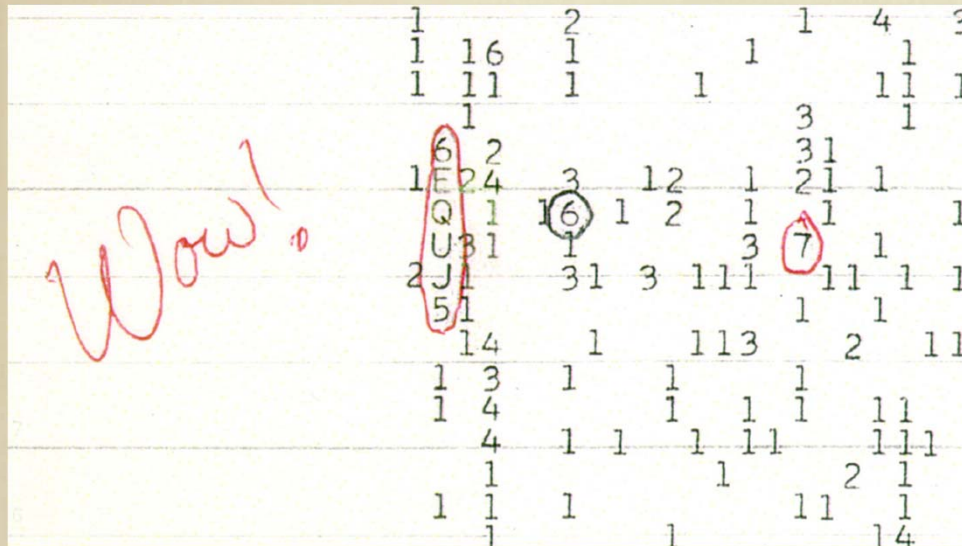 1 2 1 4 3
1 16 1 1 1
1 11 1 1 11 1
1 3 1
6 2 31
1 E24 3 12 1 21 1
Q 1 16 1 2 1 1 1 1
Wow! U31 1 3 7 1
2 J1 31 3 111 11 1 1
51 1 1
14 1 113 2 11
1 3 1 1 1
1 4 1 1 1 11
4 1 1 1 11 111
1 1 2 1
1 1 1 11 1
1 1 14